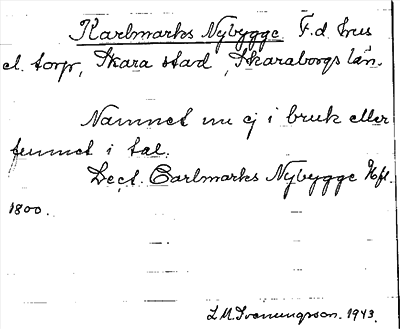 Karlmarks Nybygge F.d. hus
el. torp, Skara stad, Skaraborgs län.
Namnet nu ej i bruk eller
funnet i tal.
Dect. Carlmarks Nybygge Hfl.
1800.
L.M. Svenungsson. 1943.